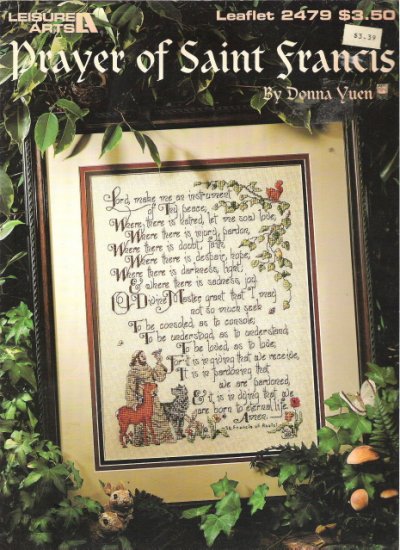 LEISURE
ARTS
Leaflet 2479 $3.50
$3.39
Prayer of Saint Francis
By Donna Yuen
Lord, make me an instrument
of Thy peace;
Where there is hatred, let me sow love;
Where there is injury, pardon,
Where there is doubt, faith
Where there is despair, hope;
Where there is darkness, light,
& where there is sadness, joy.
O Divine Master grant that I may
not so much seek
To be consoled, as to console;
To be understood, as to understand
To be loved, as to love;
For it is in giving that we receive,
It is in pardoning that
we are pardoned,
& it is in dying that we
are born to eternal life
Amen
St. Francis of Assisi